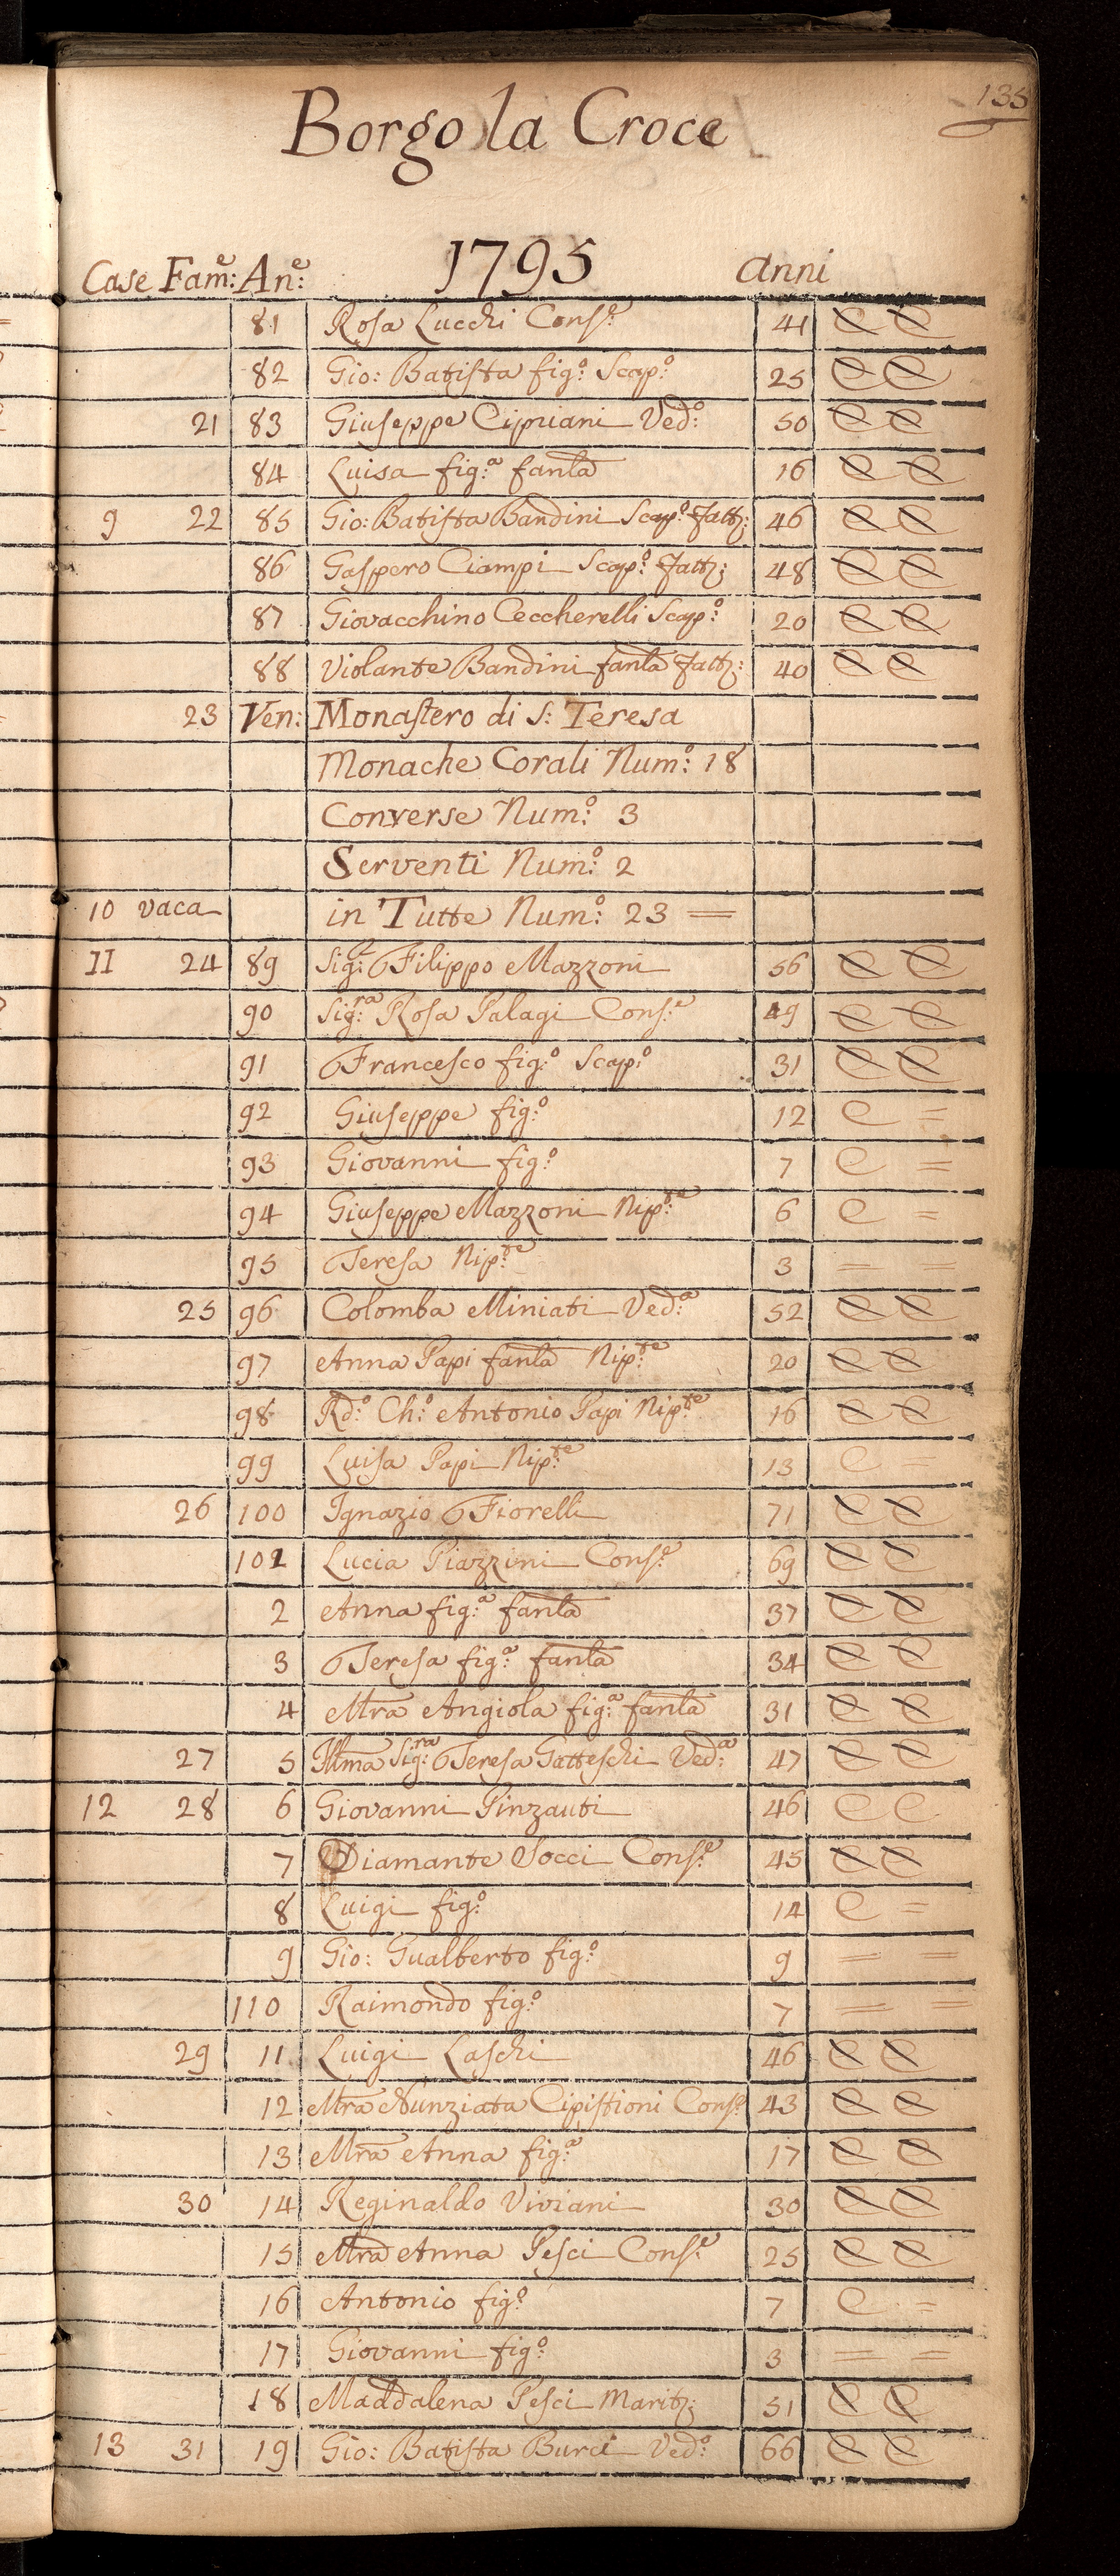 135
Borgo la Croce
1795
Case Fam:e An:e anni
81 Rosa Lucchi Cons:e 41 C C
82 Gio: Batista fig:o Scap:o 25 C C
21 83 Giuseppe Cipriani Ved:o 50 C C
84 Luisa fig:a fanla 16 C C
9 22 85 Gio: Batista Bandini Scap:o Fatt: 46 C C
86 Gaspero Ciampi Scap:o Fatt: 48 C C
87 Giovacchino Ceccherelli Scap:o 20 C C
88 Violante Bandini fanla Fatt: 40 C C
23 Ven: Monastero di S: Teresa
Monache Corali Num:o 18
Converse Num:o 3
Serventi Num:o 2
10 vaca in Tutte Num:o 23 =
II 24 89 Sig:r Filippo Mazzoni 56 C C
90 Sig:ra Rosa Palagi Cons:e 49 C C
91 Francesco fig:o Scap:o 31 C C
92 Giuseppe fig:o 12 C =
93 Giovanni fig:o 7 C =
94 Giuseppe Mazzoni Nip:te 6 C =
95 Teresa Nip:te 3 = =
25 96 Colomba Miniati Ved:a 52 C C
97 Anna Papi fanla Nip:te 20 C C
98 Rd:o Ch:o Antonio Papi Nip:te 16 C C
99 Luisa Papi Nip:te 13 C =
26 100 Ignazio Fiorelli 71 C C
101 Lucia Piazzini Cons:e 69 C C
2 Anna fig:a fanla 37 C C
3 Teresa fig:a fanla 34 C C
4 Mra Angiola fig:a fanla 31 C C
27 5 Illma Sig:ra Teresa Gatteschi Ved:a 47 C C
12 28 6 Giovanni Pinzauti 46 C C
7 Diamante Socci Cons:e 45 C C
8 Luigi fig:o 14 C =
9 Gio: Gualberto fig:o 9 = =
110 Raimondo fig:o 7 = =
29 11 Luigi Laschi 46 C C
12 Mra Nunziata Cipistioni Cons:e 43 C C
13 Mra Anna fig:a 17 C C
30 14 Reginaldo Viviani 30 C C
15 Mra Anna Pesci Cons:e 25 C C
16 Antonio fig:o 7 C =
17 Giovanni fig:o 3 = =
18 Maddalena Pesci Marit: 51 C C
13 31 19 Gio: Batista Burci Ved:o 66 C C